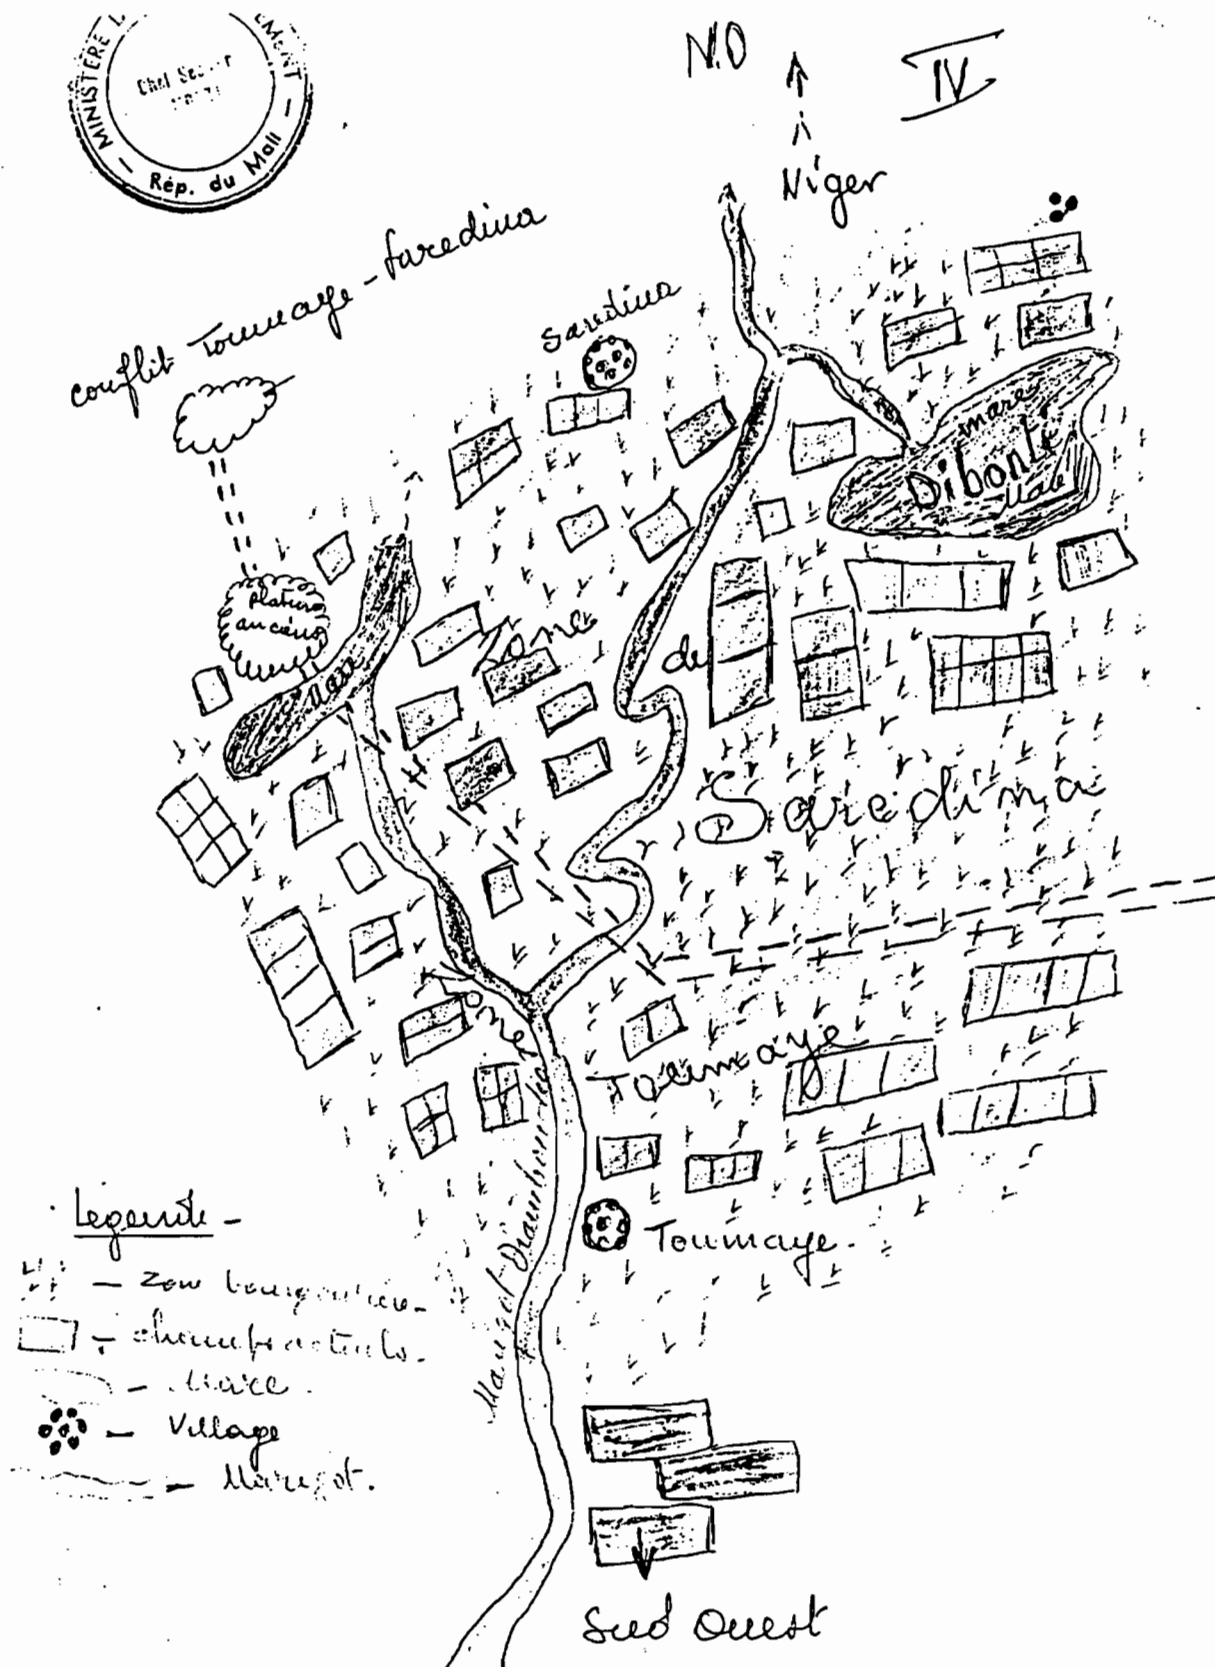 MINISTÈRE
EMENT
Chef Sec
Rép. du Mali
N.O
IV
Niger
conflit Toumaye - Saredina
Saredina
mare
Dibonti
Mare
plateau
ancien
Mare
Zone
de
Saredina
Zone
Toumaye
Marigot
Toumaye.
Légende -
- Zone bourgoutière -
- Mare.
- Village
- Marigot.
Sud Ouest